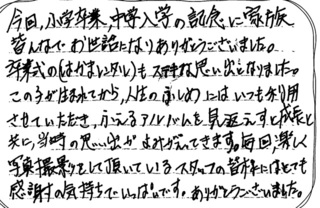 今回、小学卒業、中学入学の記念に家族
皆んなでお世話になりありがとうございました。
卒業式の(はかまレンタル)もステキな思い出となりました。
この子が生まれてから、人生のふしめにはいつも利用
させていただき、ふえるアルバムを見返えすと成長と
共に、当時の思い出がよみがえてきます。毎回、楽しく
写真撮影をして頂いているスタッフの皆様にはとても
感謝の気持ちでいっぱいです。ありがとうございました。